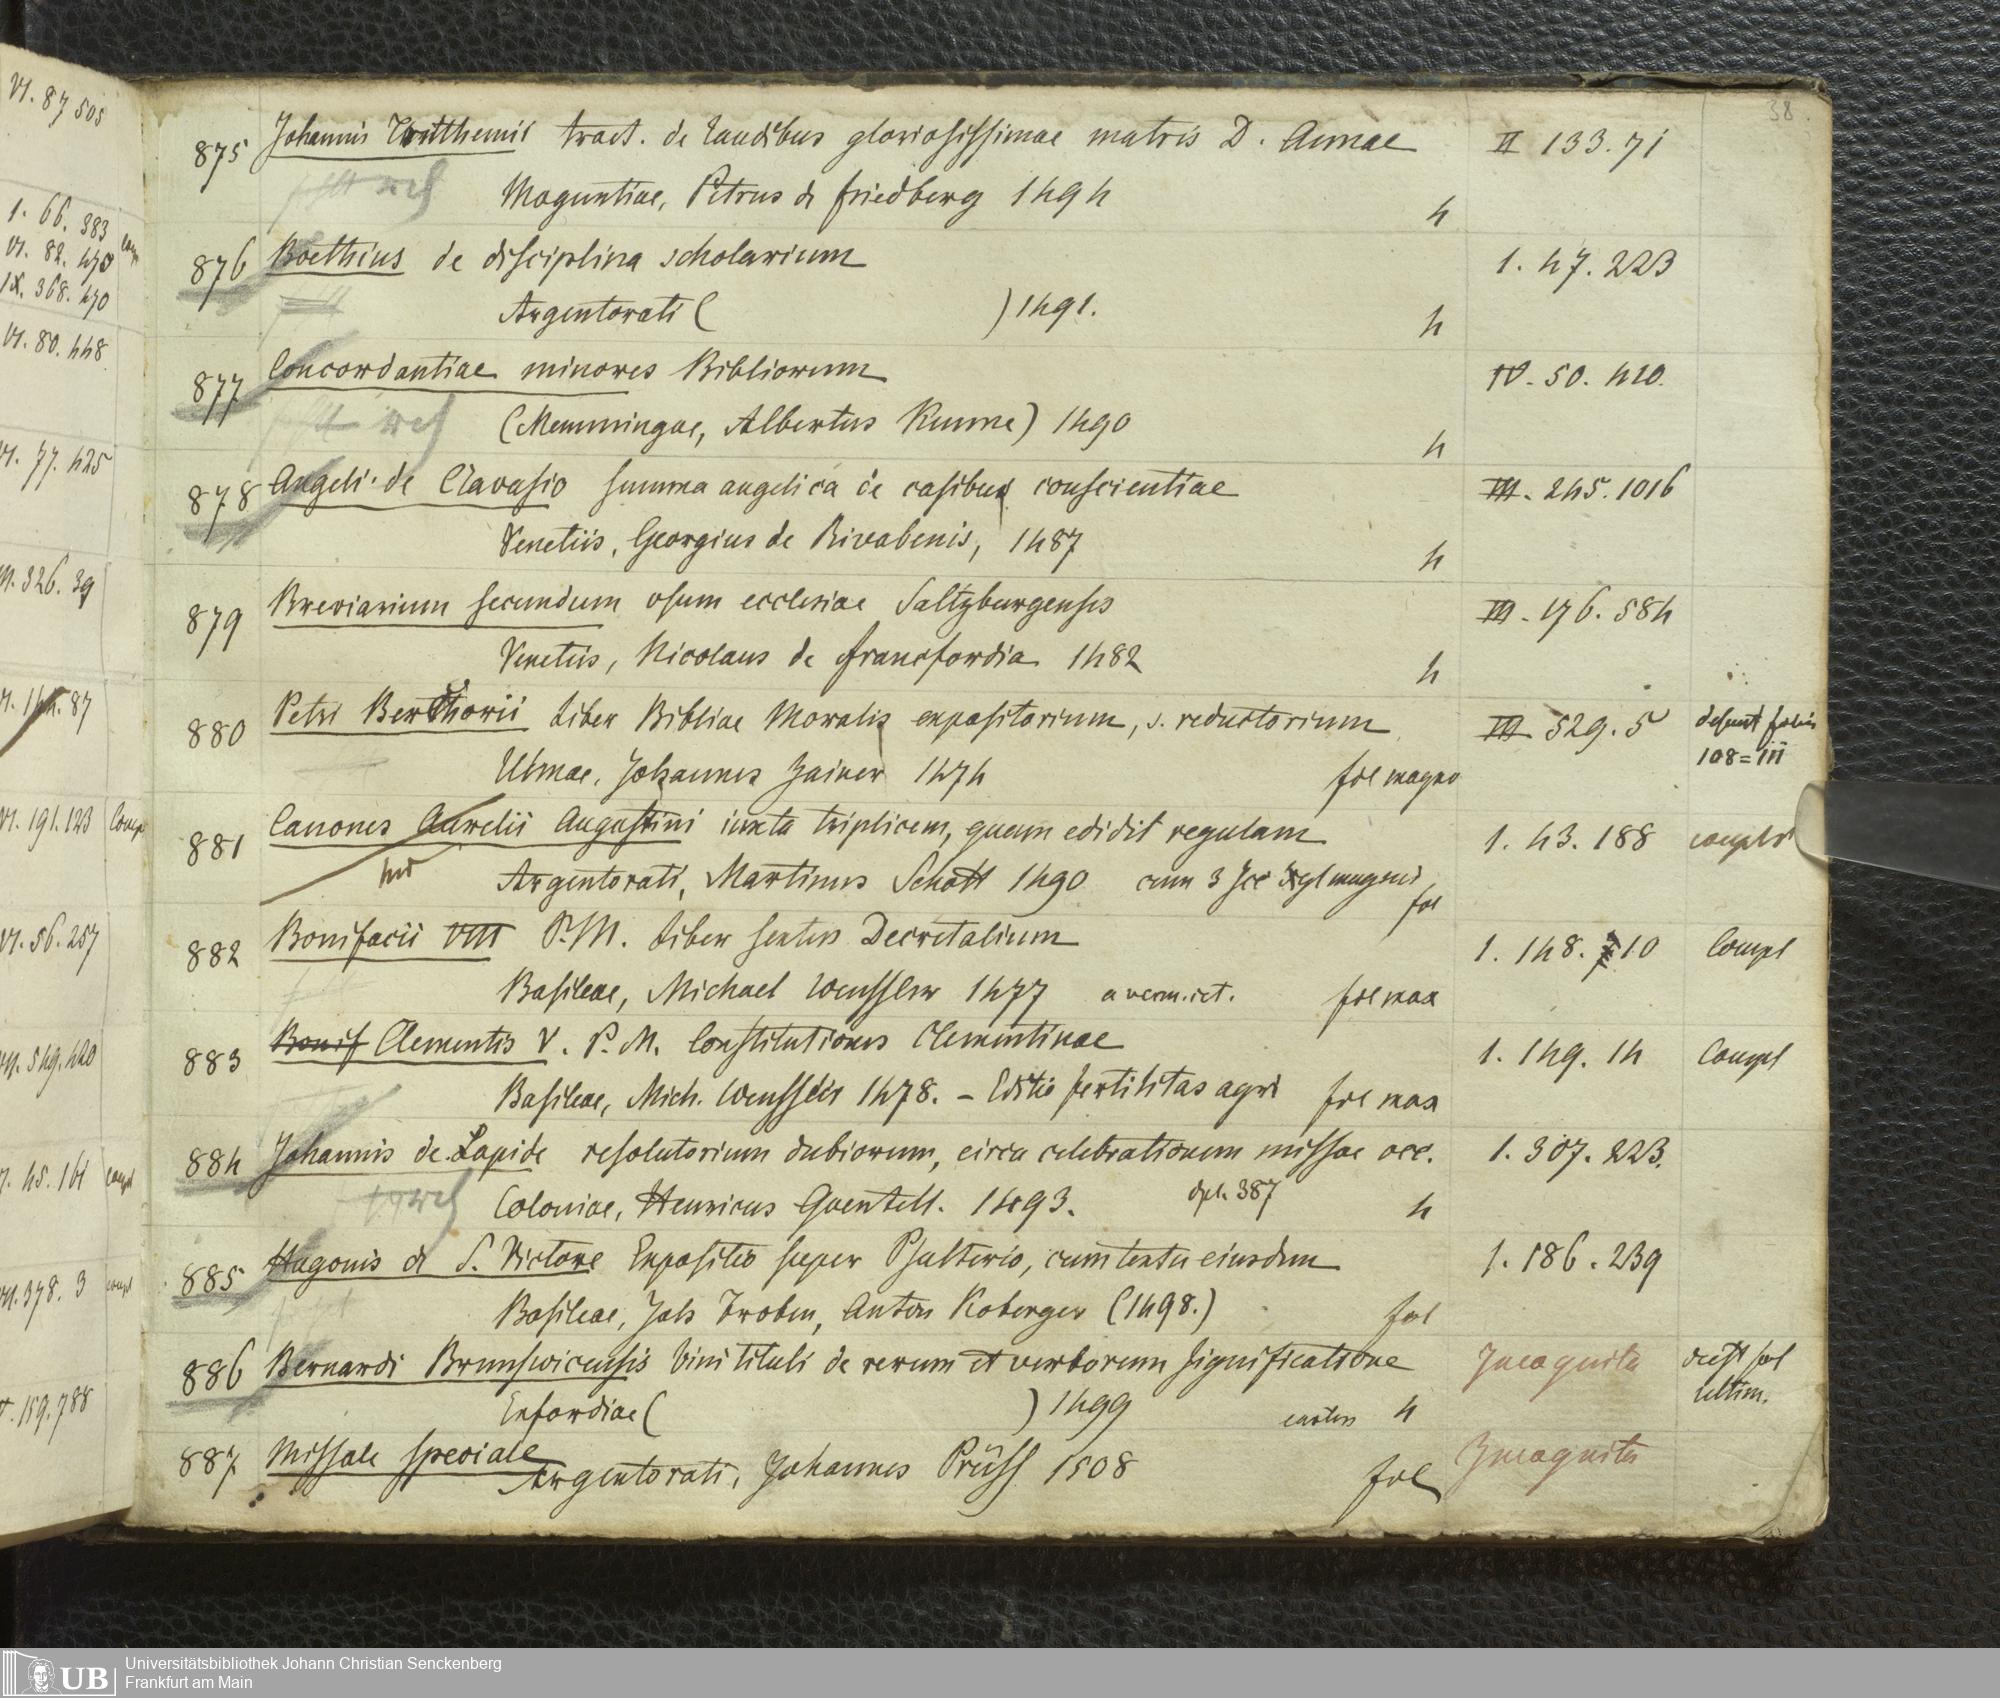 38.
875 Johannis Tritthemii tract. de laudibus gloriosissimae matris D. Annae II 133. 71
Moguntiae, Petrus de Friedberg 1494 4
876 Boethius de disciplina scholarium 1. 47. 223
Argentorati ( ) 1491. 4
877 Concordantiae minores Bibliorum IV. 50. 420.
(Memmingae, Albertus Kunne) 1490 4
878 Angeli de Clavasio summa angelica de casibus conscientiae III. 245. 1016
Venetiis, Georgius de Rivabenis, 1487 4
879 Breviarium secundum usum ecclesiae Saltzburgensis III. 176. 584
Venetiis, Nicolaus de Francfordia 1482 4
880 Petri Berthorii Liber Bibliae Moralis expositorium, s. reductorium III 529. 5 desunt folia
Ulmae, Johannes Zainer 1474 fol magno 108=III
881 Canones Aurelii Augustini iuxta triplicem, quam edidit regulam 1. 43. 188 complet
Argentorati, Martinus Schott 1490 cum 3 fol
882 Bonifacii VIII P.M. Liber sextus Decretalium 1. 148. 10 Compl
Basileae, Michael Wenssler 1477 fol max
883 Bonif Clementis V. P. M. Constitutiones Clementinae 1. 149. 14 Compl
Basileae, Mich. Wenssler 1478. – Editio fertilitas agri fol max
884 Johannis de Lapide resolutorium dubiorum, circa celebrationem missae occ. 1. 307. 223.
Coloniae, Henricus Quentell. 1493. dpl. 387 4
885 Hugonis de S. Victore Expositio super Psalterio, cum textu eiusdem 1. 186. 239
Basileae, Joh Froben, Anton Koberger (1498.) fol
886 Bernardi Brunswicensis tituli de rerum et verborum significatione Incognita deest fol
Erfordiae ( ) 1499 4 ultim.
887. Missale speciale Incognita
Argentorati, Johannes Prüss 1508 fol
VI. 87 505
1. 66. 383
VI. 82. 470
IX. 368. 470
VI. 80. 448
VI. 77. 425
326. 39
144. 87
VI. 191. 123 Compl
VI. 56. 257
549. 420
45. 161 compl
VII. 378. 3 compl
159. 788
UB
Universitätsbibliothek Johann Christian Senckenberg
Frankfurt am Main